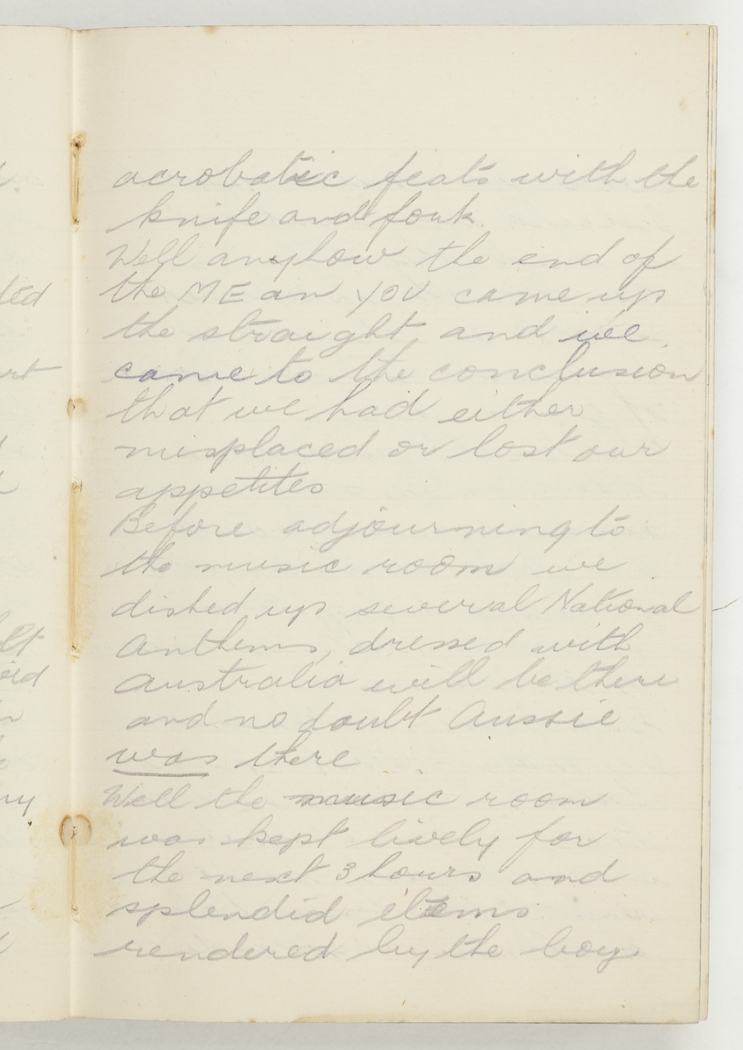 acrobatic feats with the
knife and fouk.
Well anyhow the end of
the ME an YOU came up
the straight and we
came to the conclusion
that we had either
misplaced or lost our
appetites
Before adjourning to
the music room we
dished up several National
Anthems, dressed with
Australia will be there
and no doubt Aussie
was there
Well the music room
was kept lively for
the next 3 hours and
splendid items
rendered by the boys